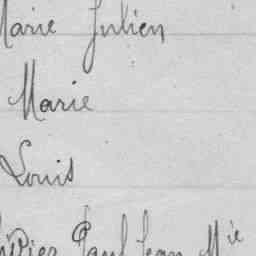 Marie Julien
Marie
Louis
Paul Jean Mie